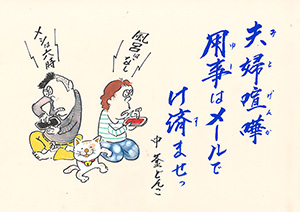 夫婦喧嘩
用事はメールで
け済ませっ
風呂はなし
メシは六時
中釜どんこ